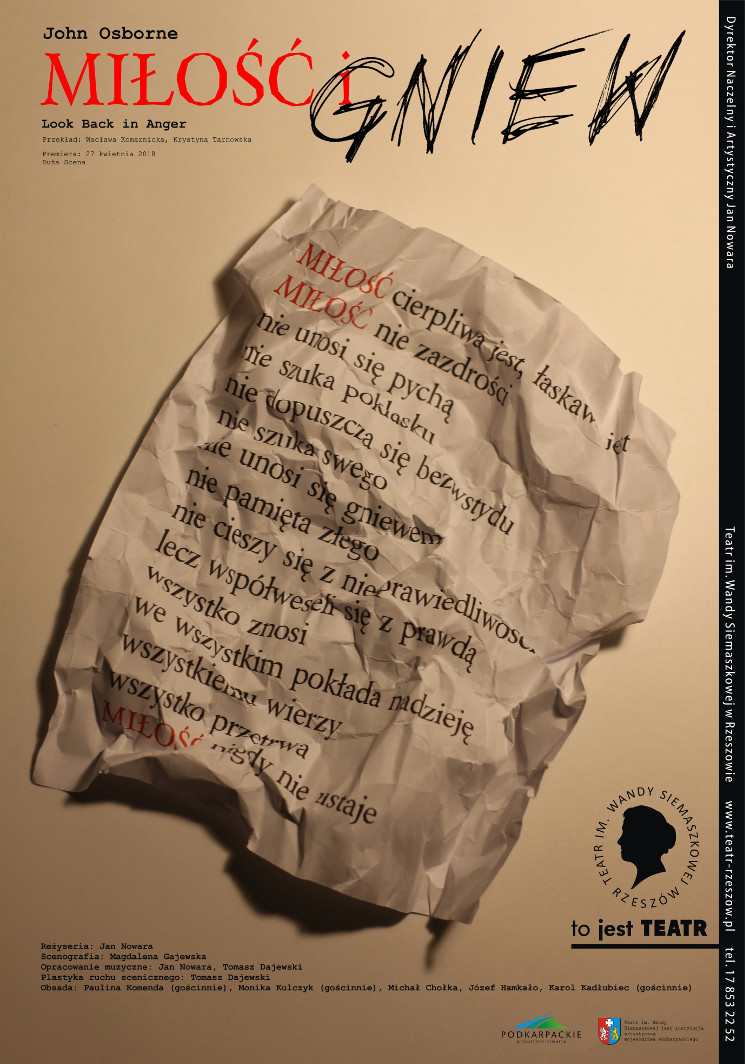 John Osborne
MIŁOŚĆ i GNIEW
Look Back in Anger
Przekład: Wacława Komarnicka, Krystyna Tarnowska
Premiera: 27 kwietnia 2018
Duża Scena
MIŁOŚĆ cierpliwa jest, łaskawa jest
MIŁOŚĆ nie zazdrości
nie unosi się pychą
nie szuka poklasku
nie dopuszcza się bezwstydu
nie szuka swego
nie unosi się gniewem
nie pamięta złego
nie cieszy się z niesprawiedliwości
lecz współweseli się z prawdą
wszystko znosi
we wszystkim pokłada nadzieję
wszystkiemu wierzy
wszystko przetrwa
MIŁOŚĆ nigdy nie ustaje
TEATR IM. WANDY SIEMASZKOWEJ RZESZÓW
to jest TEATR
Reżyseria: Jan Nowara
Scenografia: Magdalena Gajewska
Opracowanie muzyczne: Jan Nowara, Tomasz Dajewski
Plastyka ruchu scenicznego: Tomasz Dajewski
Obsada: Paulina Komenda (gościnnie), Monika Kulczyk (gościnnie), Michał Chołka, Józef Hamkało, Karol Kadłubiec (gościnnie)
PODKARPACKIE
przestrzeń otwarta
Teatr im. Wandy
Siemaszkowej jest instytucją
artystyczną
Województwa Podkarpackiego
Dyrektor Naczelny i Artystyczny Jan Nowara
Teatr im. Wandy Siemaszkowej w Rzeszowie www.teatr-rzeszow.pl tel. 17 853 22 52